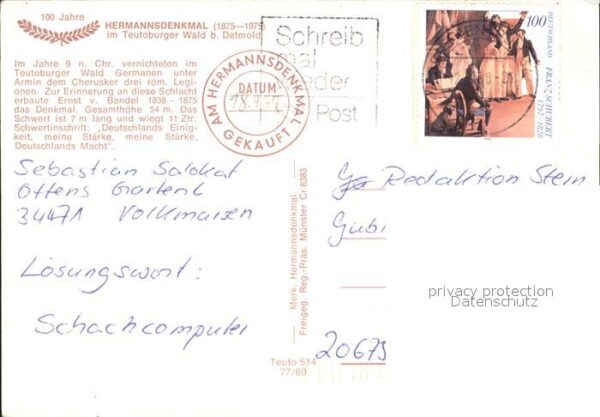 100 Jahre
HERMANNSDENKMAL (1875-1975)
im Teutoburger Wald b. Detmold
Im Jahre 9 n. Chr. vernichteten im
Teutoburger Wald Germanen unter
Armin dem Cherusker drei röm. Legi-
onen. Zur Erinnerung an diese Schlacht
erbaute Ernst v. Bandel 1838 - 1875
das Denkmal. Gesamthöhe 54 m. Das
Schwert ist 7 m lang und wiegt 11 Ztr.
Schwertinschrift: „Deutschlands Einig-
keit, meine Stärke, meine Stärke,
Deutschlands Macht".
AM HERMANNSDENKMAL
DATUM
GEKAUFT
Schreib
mal
wieder
Post
100
DEUTSCHLAND
FRANZ SCHUBERT
1797-1828
Sebastian
34471 Volkmarsen
Lösungswort:
Schachcomputer
Merk. Hermannsdenkmal
Freigeg. Reg.-Präs. Münster Cr 6383
Teuto 514
77/60
Redaktion Stern
privacy protection
Datenschutz